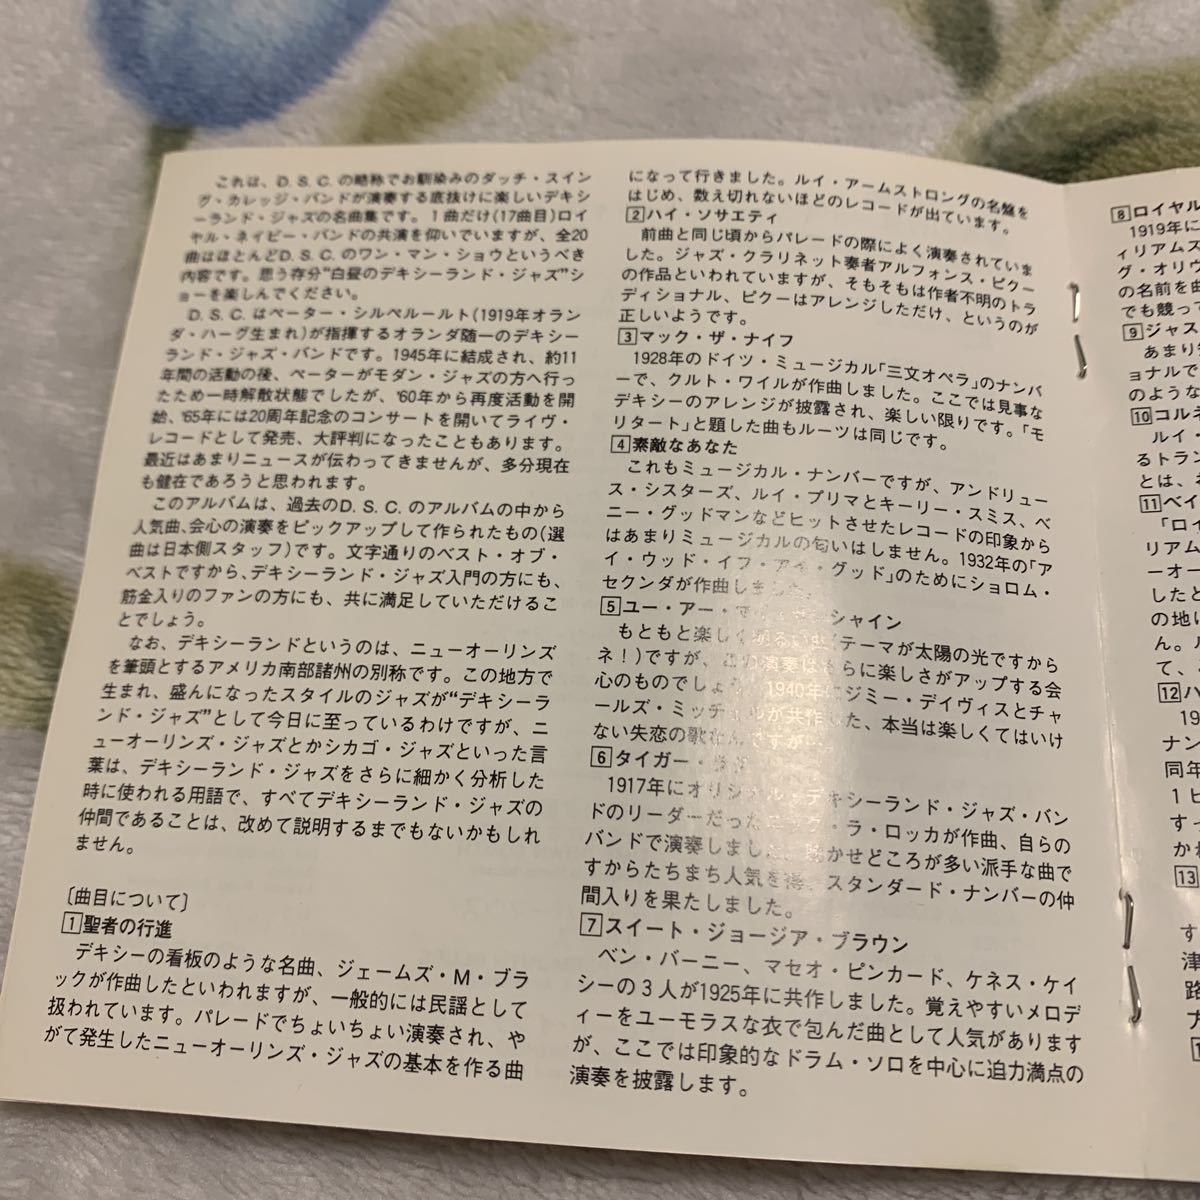 これは、D. S. C. の略称でお馴染みのダッチ・スイン
グ・カレッジ・バンドが演奏する底抜けに楽しいデキシ
ーランド・ジャズの名曲集です。1曲だけ(17曲目)ロイ
ヤル・ネイビー・バンドの共演を仰いでいますが、全20
曲はほとんどD. S. C. のワン・マン・ショウというべき
内容です。思う存分“白昼のデキシーランド・ジャズ”シ
ョーを楽しんでください。
D. S. C. はペーター・シルペルールト(1919年オラン
ダ・ハーグ生まれ)が指揮するオランダ随一のデキシー
ランド・ジャズ・バンドです。1945年に結成され、約11
年間の活動の後、ペーターがモダン・ジャズの方へ行っ
たため一時解散状態でしたが、'60年から再度活動を開
始、'65年には20周年記念のコンサートを開いてライヴ・
レコードとして発売、大評判になったこともあります。
最近はあまりニュースが伝わってきませんが、多分現在
も健在であろうと思われます。
このアルバムは、過去のD. S. C. のアルバムの中から
人気曲、会心の演奏をピックアップして作られたもの(選
曲は日本側スタッフ)です。文字通りのベスト・オブ・
ベストですから、デキシーランド・ジャズ入門の方にも、
筋金入りのファンの方にも、共に満足していただけるこ
とでしょう。
なお、デキシーランドというのは、ニューオーリンズ
を筆頭とするアメリカ南部諸州の別称です。この地方で
生まれ、盛んになったスタイルのジャズが“デキシーラ
ンド・ジャズ”として今日に至っているわけですが、ニ
ューオーリンズ・ジャズとかシカゴ・ジャズといった言
葉は、デキシーランド・ジャズをさらに細かく分析した
時に使われる用語で、すべてデキシーランド・ジャズの
仲間であることは、改めて説明するまでもないかもしれ
ません。
〔曲目について〕
1 聖者の行進
デキシーの看板のような名曲、ジェームズ・M・ブラ
ックが作曲したといわれますが、一般的には民謡として
扱われています。パレードでちょいちょい演奏され、や
がて発生したニューオーリンズ・ジャズの基本を作る曲
になって行きました。ルイ・アームストロングの名盤を
はじめ、数え切れないほどのレコードが出ています。
2 ハイ・ソサエティ
前曲と同じ頃からパレードの際によく演奏されていま
した。ジャズ・クラリネット奏者アルフォンス・ピクー
の作品といわれていますが、そもそもは作者不明のトラ
ディショナル、ピクーはアレンジしただけ、というのが
正しいようです。
3 マック・ザ・ナイフ
1928年のドイツ・ミュージカル「三文オペラ」のナンバ
ーで、クルト・ワイルが作曲しました。ここでは見事な
デキシーのアレンジが披露され、楽しい限りです。「モ
リタート」と題した曲もルーツは同じです。
4 素敵なあなた
これもミュージカル・ナンバーですが、アンドリュー
ス・シスターズ、ルイ・プリマとキーリー・スミス、ベ
ニー・グッドマンなどヒットさせたレコードの印象から
はあまりミュージカルの匂いはしません。1932年の「ア
イ・ウッド・イフ・アイ・グッド」のためにショロム・
セクンダが作曲しました。
5 ユー・アー・マイ・サンシャイン
もともと楽しく明るい曲(テーマが太陽の光ですから
ネ!)ですが、この演奏はさらに楽しさがアップする会
心のものでしょう。1940年にジミー・デイヴィスとチャ
ールズ・ミッチェルが共作した、本当は楽しくてはいけ
ない失恋の歌なんですが…。
6 タイガー・
1917年にオリジナル・デキシーランド・ジャズ・バン
ドのリーダーだった ・ラ・ロッカが作曲、自らの
バンドで演奏しました。聴かせどころが多い派手な曲で
すからたちまち人気を得、スタンダード・ナンバーの仲
間入りを果たしました。
7 スイート・ジョージア・ブラウン
ベン・バーニー、マセオ・ピンカード、ケネス・ケイ
シーの3人が1925年に共作しました。覚えやすいメロデ
ィーをユーモラスな衣で包んだ曲として人気があります
が、ここでは印象的なドラム・ソロを中心に迫力満点の
演奏を披露します。
8 ロイヤル
1919年に
ィリアムス
グ・オリウ
の名前を曲
でも競って
9 ジャス
あまり
ョナルで
のような
10 コルネ
ルイ・
るトラン
とは、
11 ベイ
「ロイ
リアム
ーオー
したと
の地に
ん。
て、
12 ハ
19
ナン
同年
1ヒ
すっ
かね
13
す
津
路